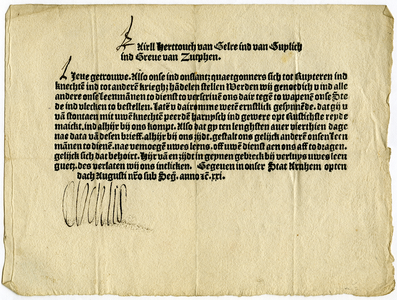 Kiell Herttouch van Gelre ind van Guylich
ind Greue van Zutphen.
Liene getrouwe. Also onse ind onslant; quaetgonners sich tot Ruyteren ind
knechte ind tot andere kriegh; hãdelen stellen Werden wij genotdich u ind alle
andere onse leenmãnen to dienst to verscriuẽ ons dair tegẽ to wapenẽ onse Ste
de ind vlecken to bestellen. Latẽ v dairomme wetẽ ernstlich gesynnẽde. dat gij v
vã stontaen mit uwẽ knechtẽ peerdẽ harnysch ind gewere opt Rustichste reyde
maickt, ind alhijr bij ons kompt. Also dat gy ten lenghsten auer vierthien dage
nae data vã desen brieff. alhijr bij ons zijdt. gestalt ons gelijck anderẽ onsen leen
mãnen to dienẽ. nae vemoegẽ uwes leens. off uwẽ dienst aen ons aff to dragen.
gelijck sich dat behoirt. Hijr vã en zijdt in geynen gebreck bij verluys uwes leen
guetz. des verlaten wij ons intlicken. Gegeuen in onser Stat Arnhem opten
dach Augusti nr̃o sub Seg̃. anno